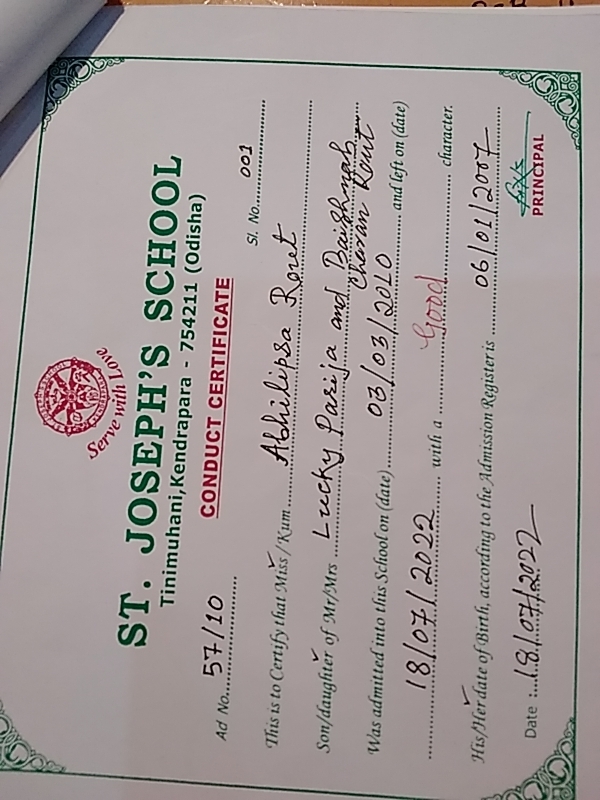 Serve with Love
ST. JOSEPH'S SCHOOL
Tinimuhani, Kendrapara - 754211 (Odisha)
CONDUCT CERTIFICATE
Ad No. 57/10 Sl. No. 001
This is to Certify that Miss/Kum Abhilipsa Rout
Son/daughter of Mr/Mrs Lucky Parija and Baishnab Charan Rout
Was admitted into this School on (date) 03/03/2010 and left on (date)
18/07/2022 with a Good character.
His/Her date of Birth, according to the Admission Register is 06/01/2007
Date : 18/07/2022
PRINCIPAL